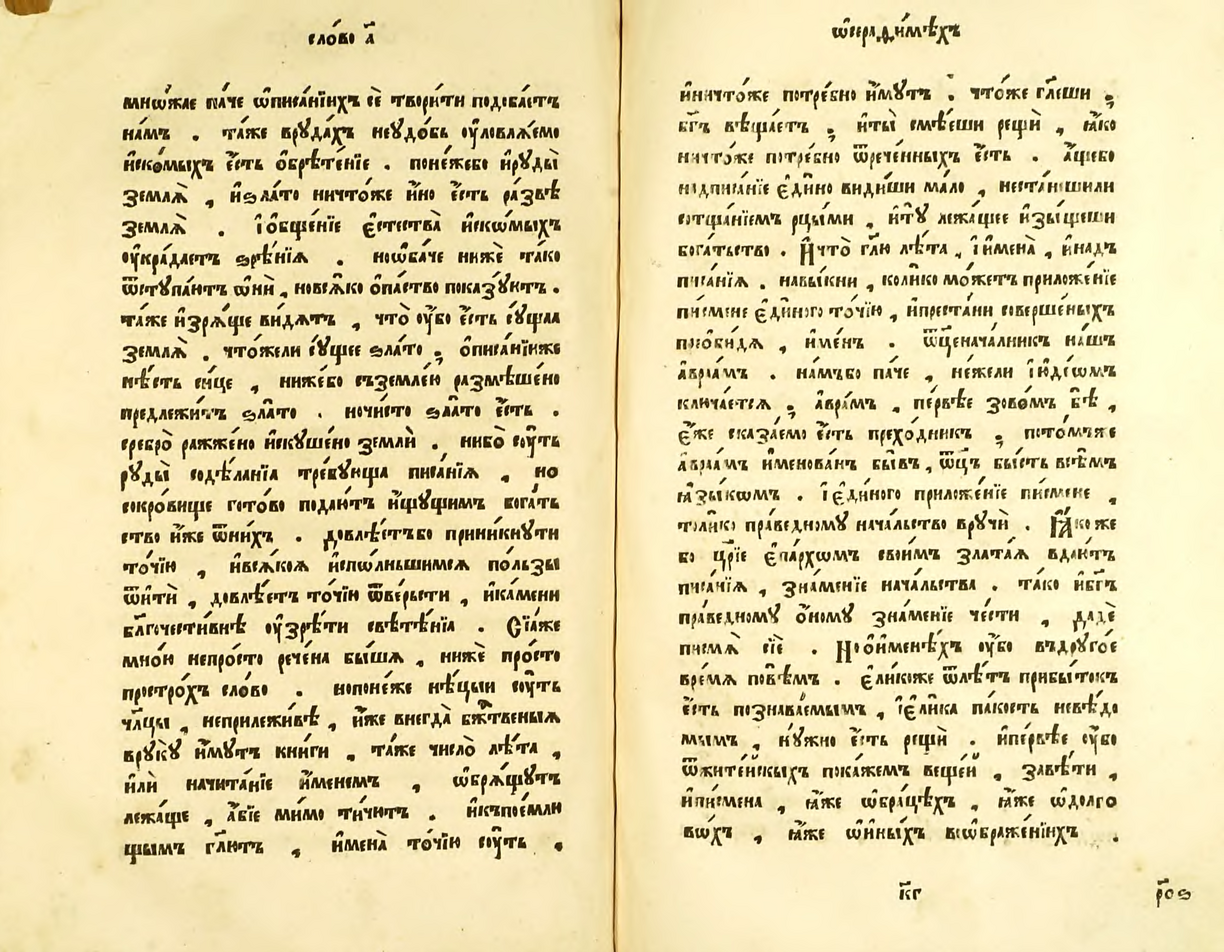 сло́во а҃
мнѡ́жае па́че ѡ҆писа́нїихъ сѐ твори́ти подоба́етъ
на́мъ . та́же врꙋда́хъ неꙋдо́бь ᲂу҆ловлѧ́емо
и҆ско́мыхъ є҆́сть ѡ҆брѣ́тенїе . поне́жебо и҆рꙋды̀
землѧ̀ , и҆ѕла́то ничто́же и҆́но є҆́сть ра́звѣ
землѧ̀ . і҆ѻ҆бще́нїе є҆стества̀ и҆ско́мыхъ
ᲂу҆кра́даетъ ѕрѣ́нїѧ . но ѻ҆ба́че нижѐ та́ко
ѿстꙋпа́ютъ ѡ҆нѝ , но всѧ́ко ѻ҆па́ство показꙋ́ютъ .
та́же и҆зрѧ́щe ви́дѧтъ , что̀ ᲂу҆́бо є҆́сть сꙋ́щаѧ
землѧ̀ . что́жели сꙋ́щее ѕла́то ; ѻ҆писа́нїиже
нѣ́сть си́це , ниже́бо съземле́ю размѣ́шено
предлежи́тъ ѕла́то . но чи́сто ѕла́то є҆́сть .
сребро̀ ражже́но и҆скꙋше́но землѝ . ни́бо сꙋ́ть
рꙋды̀ содѣ́ланїа тре́бꙋюща писа́нїѧ , но
сокро́вище гото́во подаю́тъ и҆́щꙋщимъ бога́тъ
ство и҆́же ѿни́хъ . довлѣ́етъбо прини́кнꙋти
то́чїю , и҆всѧ́коѧ и҆спо́лньшимсѧ по́льзы
ѿитѝ , довлѣ́етъ то́чїю ѿве́рьсти , и҆ка́мени
бл҃гочести́внѣ ᲂу҆зрѣ́ти свѣ́тенїа . Сїа́же
мно́ю непро́сто рече́на бы́шѧ , нижѐ про́сто
простро́хъ сло́во . нопоне́же нѣ́цыи сꙋ́ть
чл҃цы , неприлѣ́живѣ , и҆́же внегда̀ бж҃твеныѧ
врꙋ́кꙋ и҆́мꙋтъ кни́ги , та́же число̀ лѣ́та ,
и҆лѝ начита́нїе и҆́менемъ , ѡ҆брѧ́щꙋтъ
лежа́ще , а҆́бїе ми́мо тича́тъ . и҆къпое́млю
щымъ гл҃ютъ , и҆мена̀ то́чїю сꙋ́ть ,
ѡ҆серафи́мѣхъ
и҆ничто́же потре́бно и҆́мꙋтъ . что́же гл҃еши ;
бг҃ъ вѣща́етъ ; и҆ты̀ смѣ́еши рещѝ , ꙗ҆́ко
ничто́же потре́бно ѿрече́нныхъ є҆́сть . а҆́щебо
надписа́нїе є҆ди́но ви́диши ма́ло , неста́ншили
сотща́нїемъ рцы́ми , и҆тꙋ̀ лежа́щее и҆зы́щеши
бога́тьство . И҆что̀ гл҃ю лѣ́та , і҆и҆мена̀ , и҆на́дъ
писа́нїѧ . навы́кни , коли́ко мо́жетъ приложе́нїе
пи́смене є҆ди́ного то́чїю , и҆преста́ни соверше́ныхъ
пребидѧ̀ , и҆ме́нъ . ѿцеанача́лникъ на́шъ
а҆враа́мъ . на́мъбо па́че , не́жели і҆ꙋде́ѡмъ
ключа́етсѧ ; а҆вра́мъ , пе́рвѣе зово́мъ бѣ̀ ,
є҆́же сказа́емо є҆́сть прехо́дникъ ; пото́мже
а҆враа́мъ и҆менова́нъ бы́въ , ѿц҃ъ бы́сть всѣ́мъ
ꙗ҆зы́кѡмъ . і҆є҆ди́ного приложе́нїе пи́смене ,
толи́ко пра́ведномꙋ нача́льство врꙋчѝ . Ꙗ҆́коже
бо цр҃їе є҆па́рхѡмъ свои́мъ злата́ѧ вдаю́тъ
писа́нїѧ , зна́менїе нача́льства . та́ко и҆бг҃ъ
пра́ведномꙋ ѻ҆́номꙋ зна́менїе че́сти , дадѐ
письмѧ̀ сїѐ . Но ѻ҆и҆ме́нѣхъ ᲂу҆́бо въдрꙋго́е
вре́мѧ повѣ́мъ . є҆ли́коже ѿлѣ́тъ прибы́токъ
є҆́сть познава́емымъ , і҆є҆ли́ка па́кость невѣ́до
мымъ , нꙋ́жно є҆́сть рещѝ . и҆пе́рвѣе ᲂу҆́бо
ѿжите́йскыхъ пока́жемъ веще́й , завѣ́ти ,
и҆письмена̀ , ꙗ҆́же ѡ҆бра́цѣхъ , ꙗ҆́же ѡ҆до́лго
вѡ́хъ , ꙗ҆́же ѡ҆и҆ны́хъ воѡ҆браже́нїихъ .
к҃г
р҃оѕ